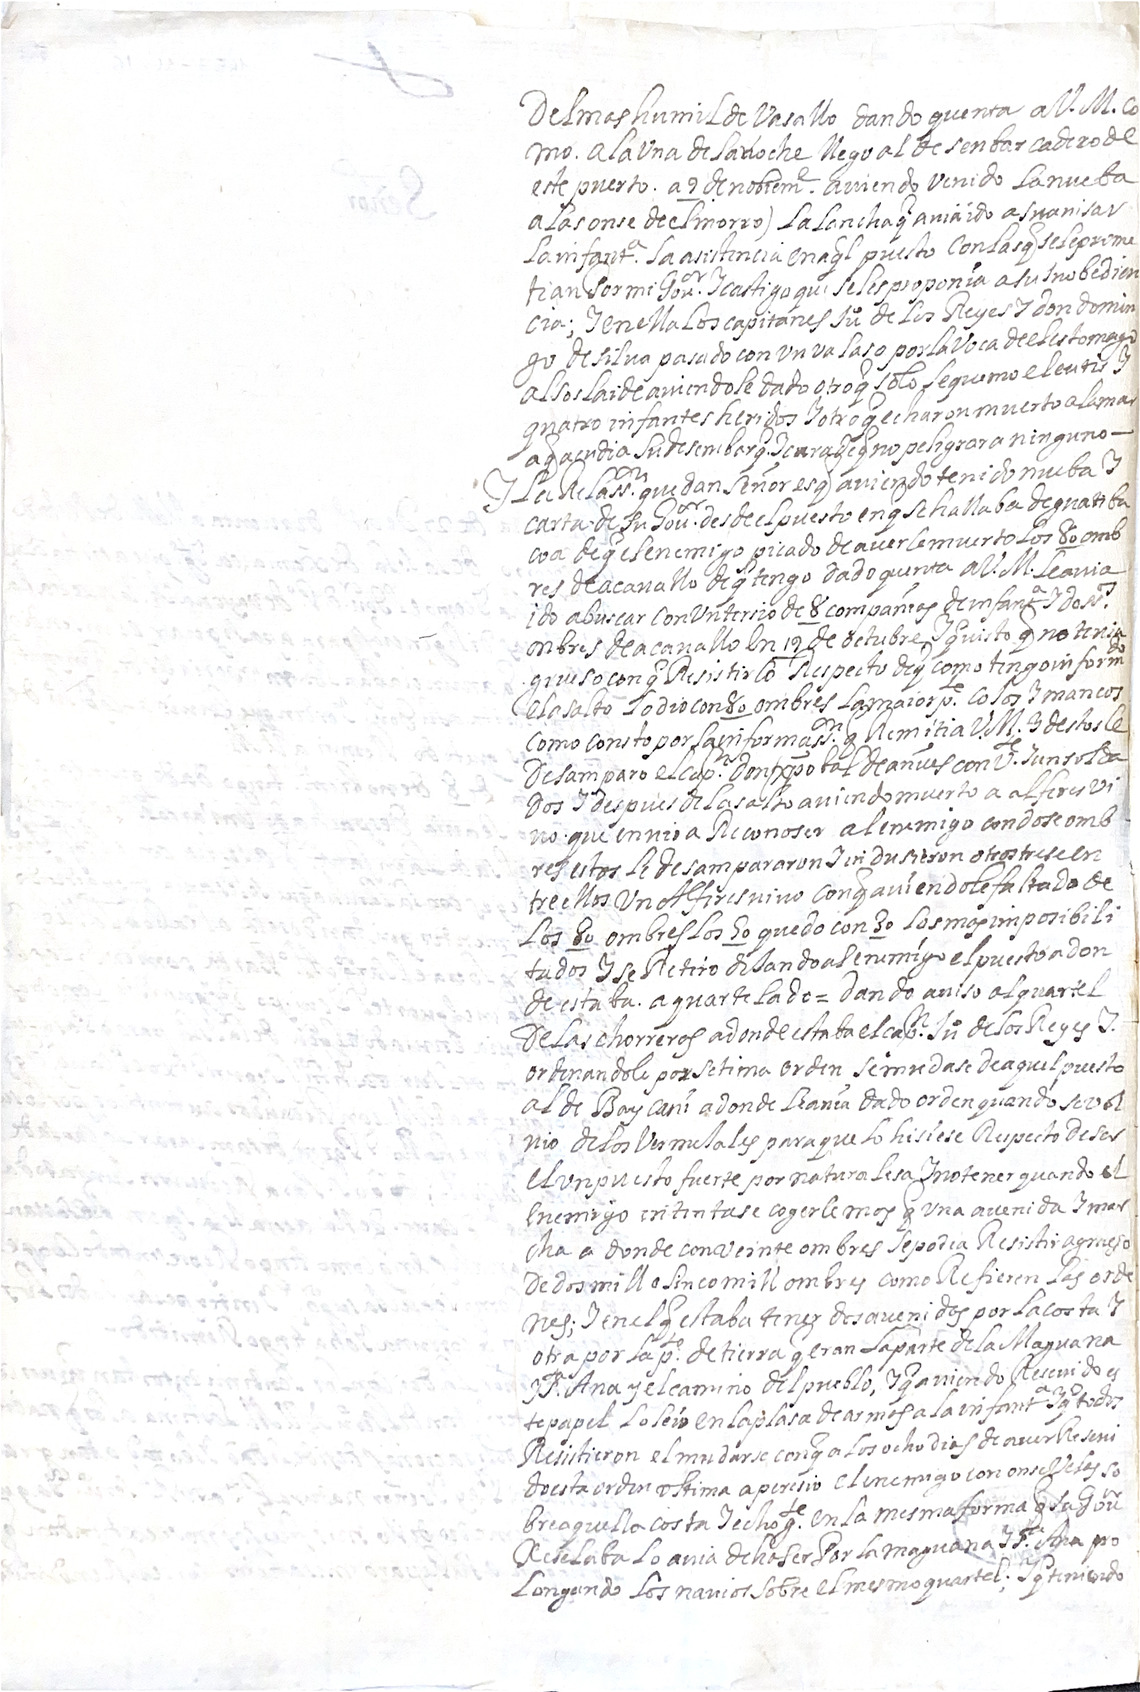 Señor
Del mas humil de Vasallo dando quenta a V. M. Co
mo. a la Una de la noche llego al desenbarcadero de
este puerto. a 9 de nobiem^e. aviendo venido la nueba
a las onse de el morro) la lancha q̃ avia ido a su avisar
la infant^a. la asistencia en aq̃l puesto con las q̃ se le prome
tian por mi Gov^r. I castigo que se les proponia a su Inobedien
cia; I en ella los capitanes Ju^o de los Reyes I don domin
go de silva pasado con un valaso por la Voca de el estomago
al soslaide aviendole dado otro q̃ solo le quemo el cutis I
quatro infantes heridos I otro q̃ echaron muerto a la mar
a q̃ acudi a su desembarq̃. I cura q̃ no peligrara ninguno
I La Relass^on. que dan Señor es q̃ aviendo tenido nueba I
carta de su Gov^or. desde el puesto en q̃ se hallaba de guatiba
coa de q̃ el enemigo picado de averle muerto los 80 omb
res de a cavallo de q̃ tengo dado quenta a V. M. le avia
ido a buscar con Un tersio de 8 compañias de infant^a I dos^s.
ombres de a cavallo en 19 de octubre, I q̃ visto q̃ no tenia
grueso con q̃ Resistirlo Respecto de q̃ como tengo inform^do
el asalto lo dio con 80 ombres la maior p^te. cojos I mancos
como consto por la informass^on. q̃ Remiti a V. M. I destos le
Desamparo el cap^n. don xp̃obal de anues con V^te. I un solda
dos I despues de el asalto aviendo muerto a alferes vi
vo. que envio a Reconoser al enemigo con dose omb
res estos le desampararon I indusieron otros trese en
tre ellos Un Alferes vivo con q̃ aviendole faltado de
Los 80 ombres los 50 quedo con 30 los mas imposibili
tados I se Retiro dejando al enemigo el puesto adon
de estaba. aquartelado = dando aviso al quartel
De las chorreras adonde estaba el cap^n. Ju^o de los Reyes I.
ordenandole por setima orden se mudase de aquel puesto
al de Baycani adonde le avia dado orden quando se vol
vio de los Vermejales para que lo hisiese Respecto de ser
el un puesto fuerte por naturalesa I no tener quando el
enemigo intentase cogerle mas q̃ Una avenida I mar
cha a donde con veinte ombres se podia Resistir a grueso
De dos mill o sinco mill ombres como Refieren las orde
nes; I en el q̃ estaba tener dos avenidas por la costa I
otra por la p^te. de tierra q̃ eran la parte de la Maguana
y S^ta. Ana y el camino del pueblo, I q̃ aviendo Resevido es
te papel lo leio en la plasa de armas a la infant^a I q̃ todos
Resistieron el mudarse con q̃ a los ocho dias de aver Resevi
do esta orden ultima aparesio el enemigo con onse Velas so
bre aquella costa I echo g^te. en la mesma forma q̃ su Gov^or
Reselaba lo avia de haser Por la maguana I S^ta. Ana pro
longando los navios sobre el mesmo quartel; I q̃ teniendo